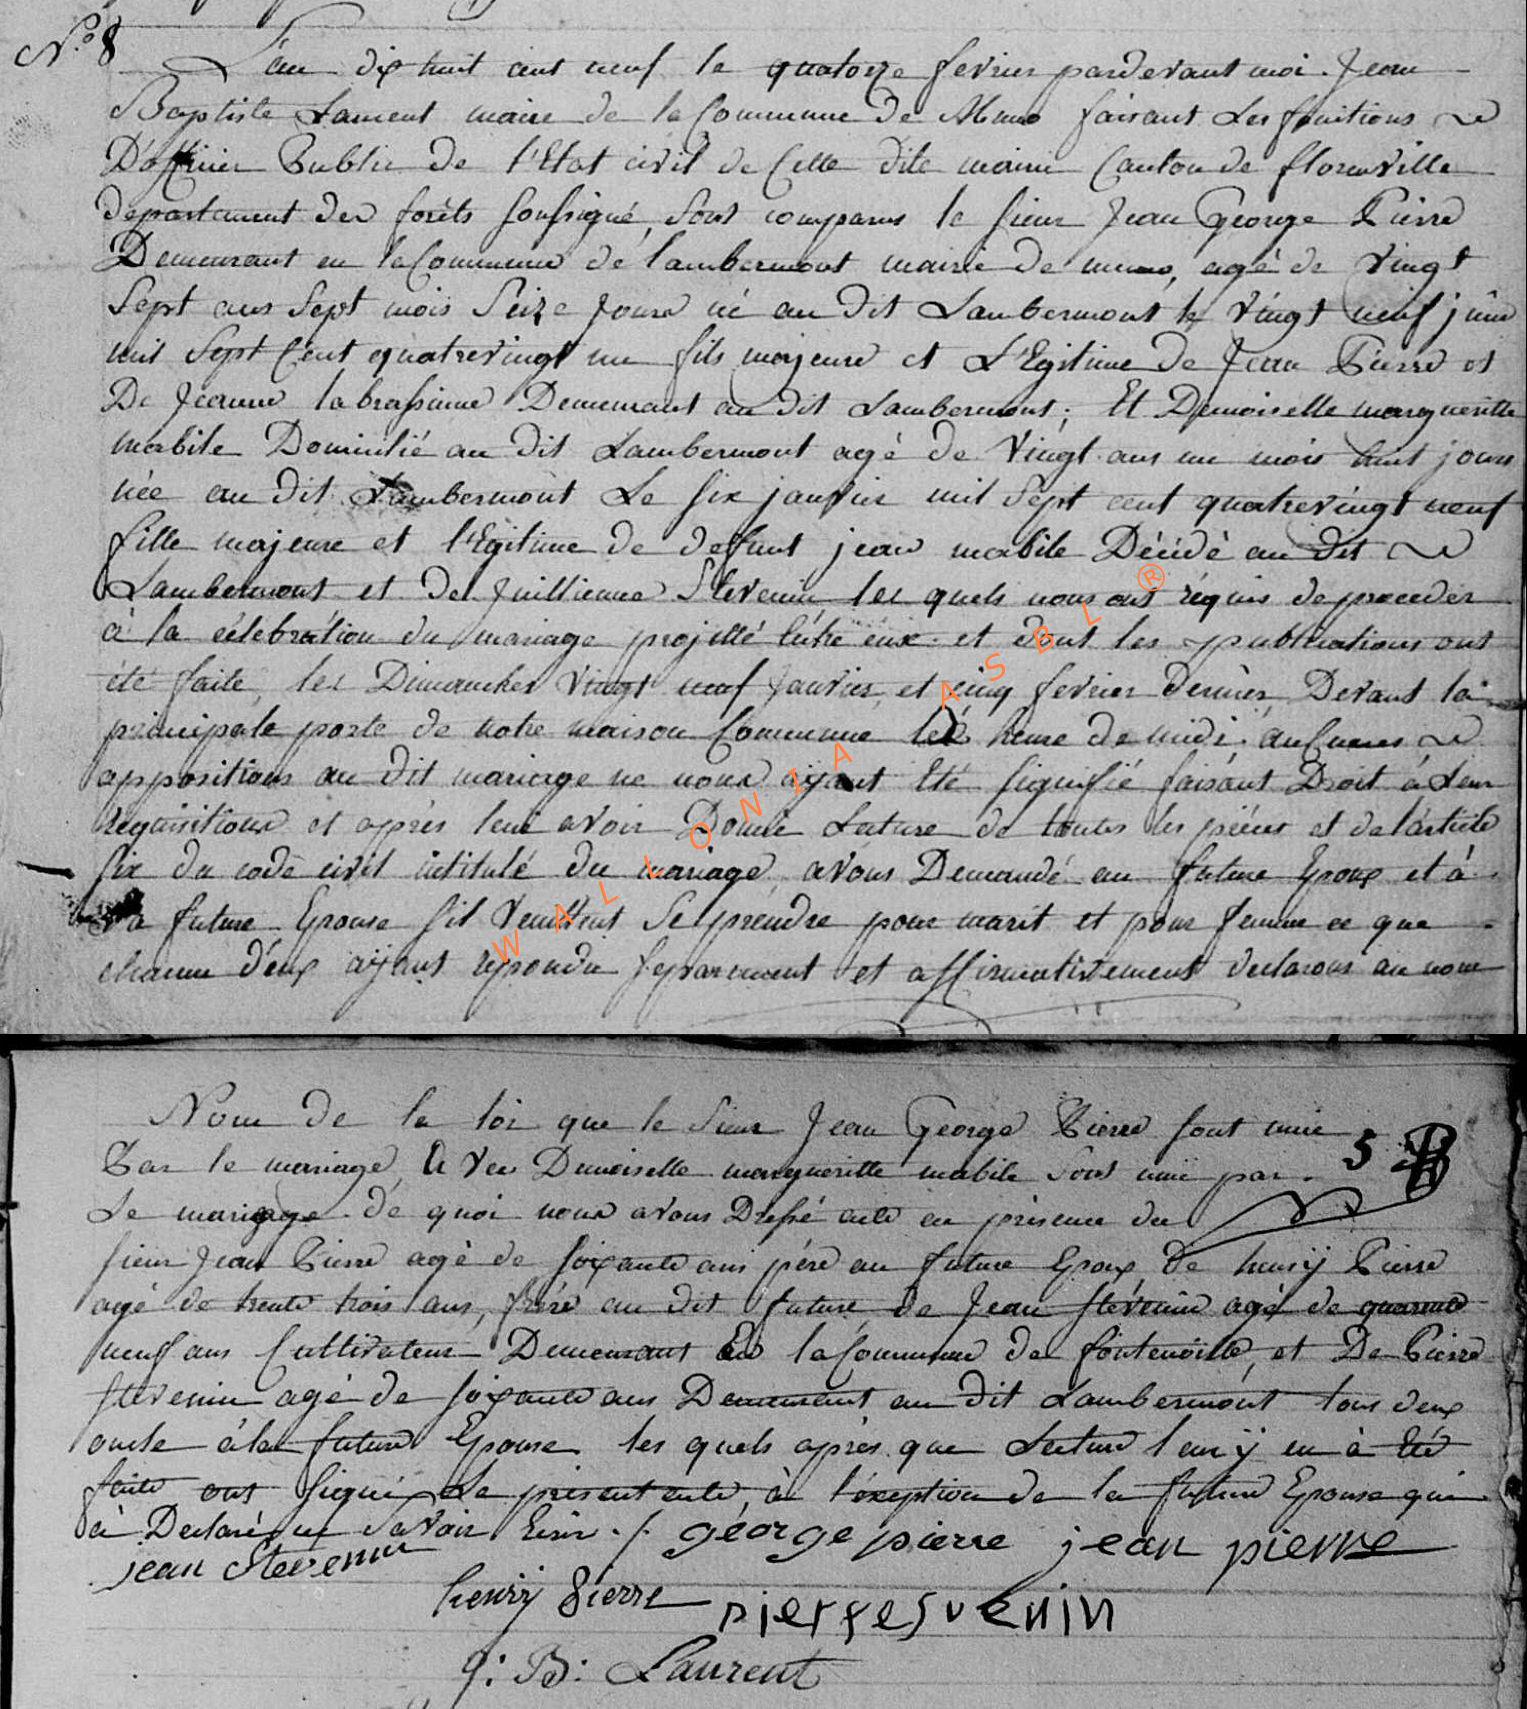 N.o 8
L'an dix huit cent neuf le quatorze fevrier pardevant moi Jean
Baptiste Laurent maire de la Commune de Muno faisant Les fonctions
D'officier Public de l'Etat civil de Cette dite mairie Canton de florenville
departement des forêts soussigné, sont comparus le sieur Jean George Pierre
Demeurant en la Commune de lambermont mairie de muno, agé de vingt
Sept ans Sept mois Seize Jours né au dit Lambermont le vingt neuf juin
mil Sept Cent quatrevingt un fils majeure et L'Egitime de Jean Pierre et
De Jeanne labrassinne Demeurant au dit Lambermont; Et Demoiselle margueritte
mabile Domicilié au dit Lambermont agé de vingt ans un mois huit jours
née au dit Lambermont Le six janvier mil Sept cent quatrevingt neuf
fille majeure et l'Egitime de deffunt jean mabile Décédé au dit
Lambermont et de Juillienne Stevenin les quels nous ont réquis de proceder
à la célebration du mariage projetté Entre eux et dont les publications ont
été faite, les Dimanches vingt neuf Janvier, et cinq fevrier dernier, Devant la
principale porte de notre maison Commune heure de midi aucunes
oppositions au dit mariage ne nous aÿant Eté signifié faisant Droit à Leur
requisitions et après leur avoir Donné Lecture de toutes les pièces et de l'article
six du code civil intitulé du mariage, avons Demandé au future Epoux et à
la future Epouse s'il veullent Se prendre pour marit et pour femme ce que
chacun d'eux aÿant repondu separement et affirmativement declarons au nom
Nom de la loi que le Sieur Jean George Pierre sont unie
Par le mariage, Demoiselle margueritte mabile Sont unie par
Le mariage de quoi nous avons Dressé acte en présence du
sieur Jean Pierre agé de soixante ans père au future Epoux, de henrÿ Pierre
agé de trente trois ans, frère au dit future, de Jean stévenin agé de quarante
neuf ans Cultivateur Demeurant En la Commune de fontenoille, et De Pierre
stevenin agé de soixante ans Demeurant au dit Lambermont tous deux
oncle à la future Epouse les quels après que Lecture leur ÿ en à Eté
faite ont signé Le présent acte, à l'éxeption de la future Epouse qui
à Declaré ne Savoir Ecrir ./. géorge pierre jean pierre
jean Stevenin
henrÿ Pierre
J: B: Laurent
WALLONIA ASBL ®